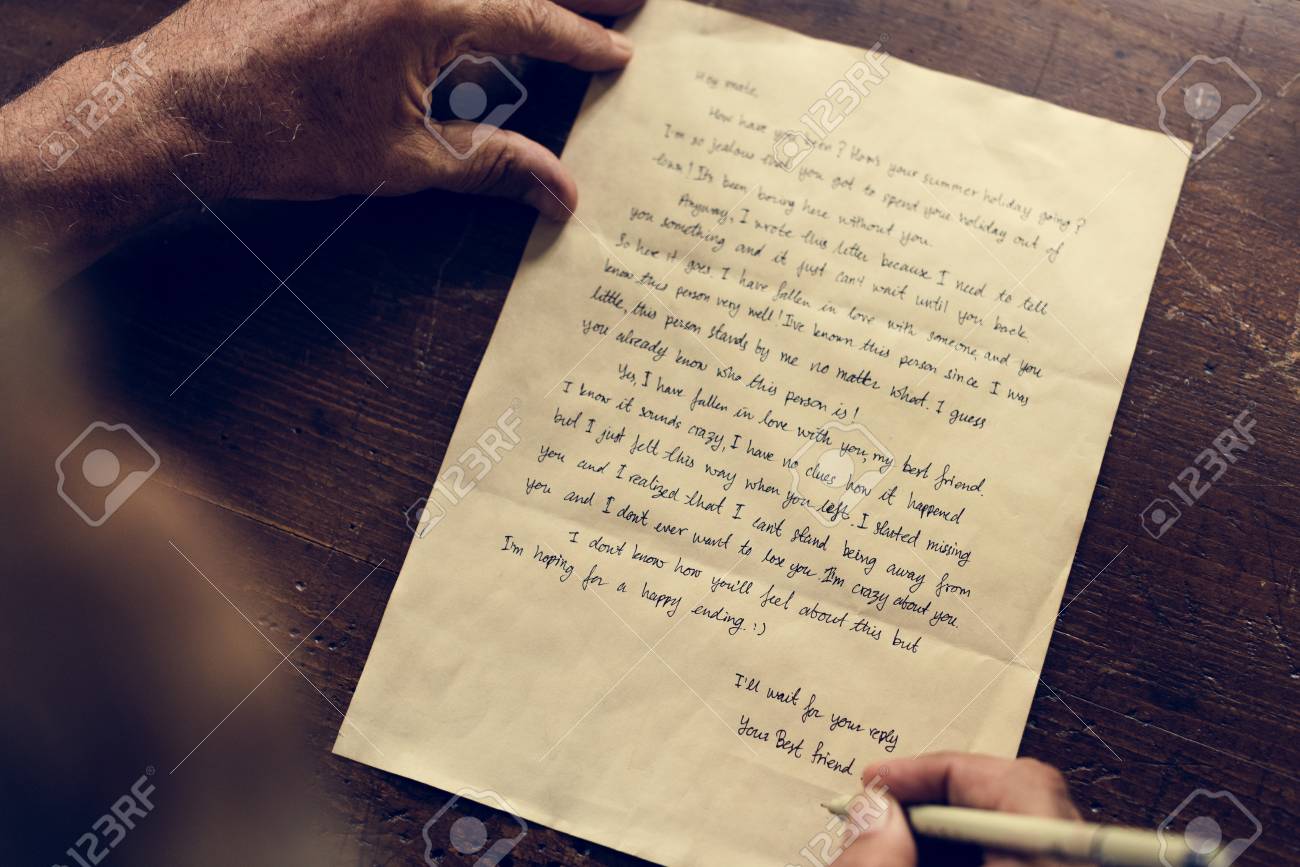 Hey mate,
How have you been? How's your summer holiday going?
I'm so jealous that you got to spend your holiday out of
town! It's been boring here without you.
Anyway, I wrote this letter because I need to tell
you something and it just can't wait until you back.
So here it goes. I have fallen in love with someone, and you
know this person very well! I've known this person since I was
little, this person stands by me no matter what. I guess
you already know who this person is!
Yes, I have fallen in love with you, my best friend.
I know it sounds crazy, I have no clues how it happened
but I just felt this way when you left. I started missing
you and I realized that I can't stand being away from
you and I dont ever want to lose you. I'm crazy about you.
I dont know how you'll feel about this but
I'm hoping for a happy ending. :)
I'll wait for your reply
Your Best friend
123RF
123RF
123RF
123RF
123RF
123RF
123RF
123RF
123RF